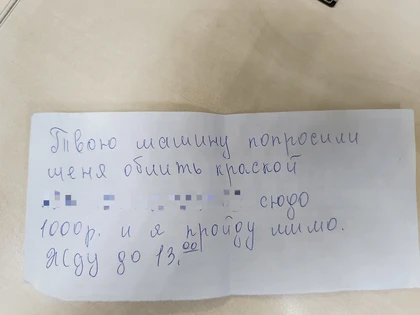 Твою машину попросили
меня облить краской
сюдо
1000р. и я пройду мимо.
Жду до 13.00